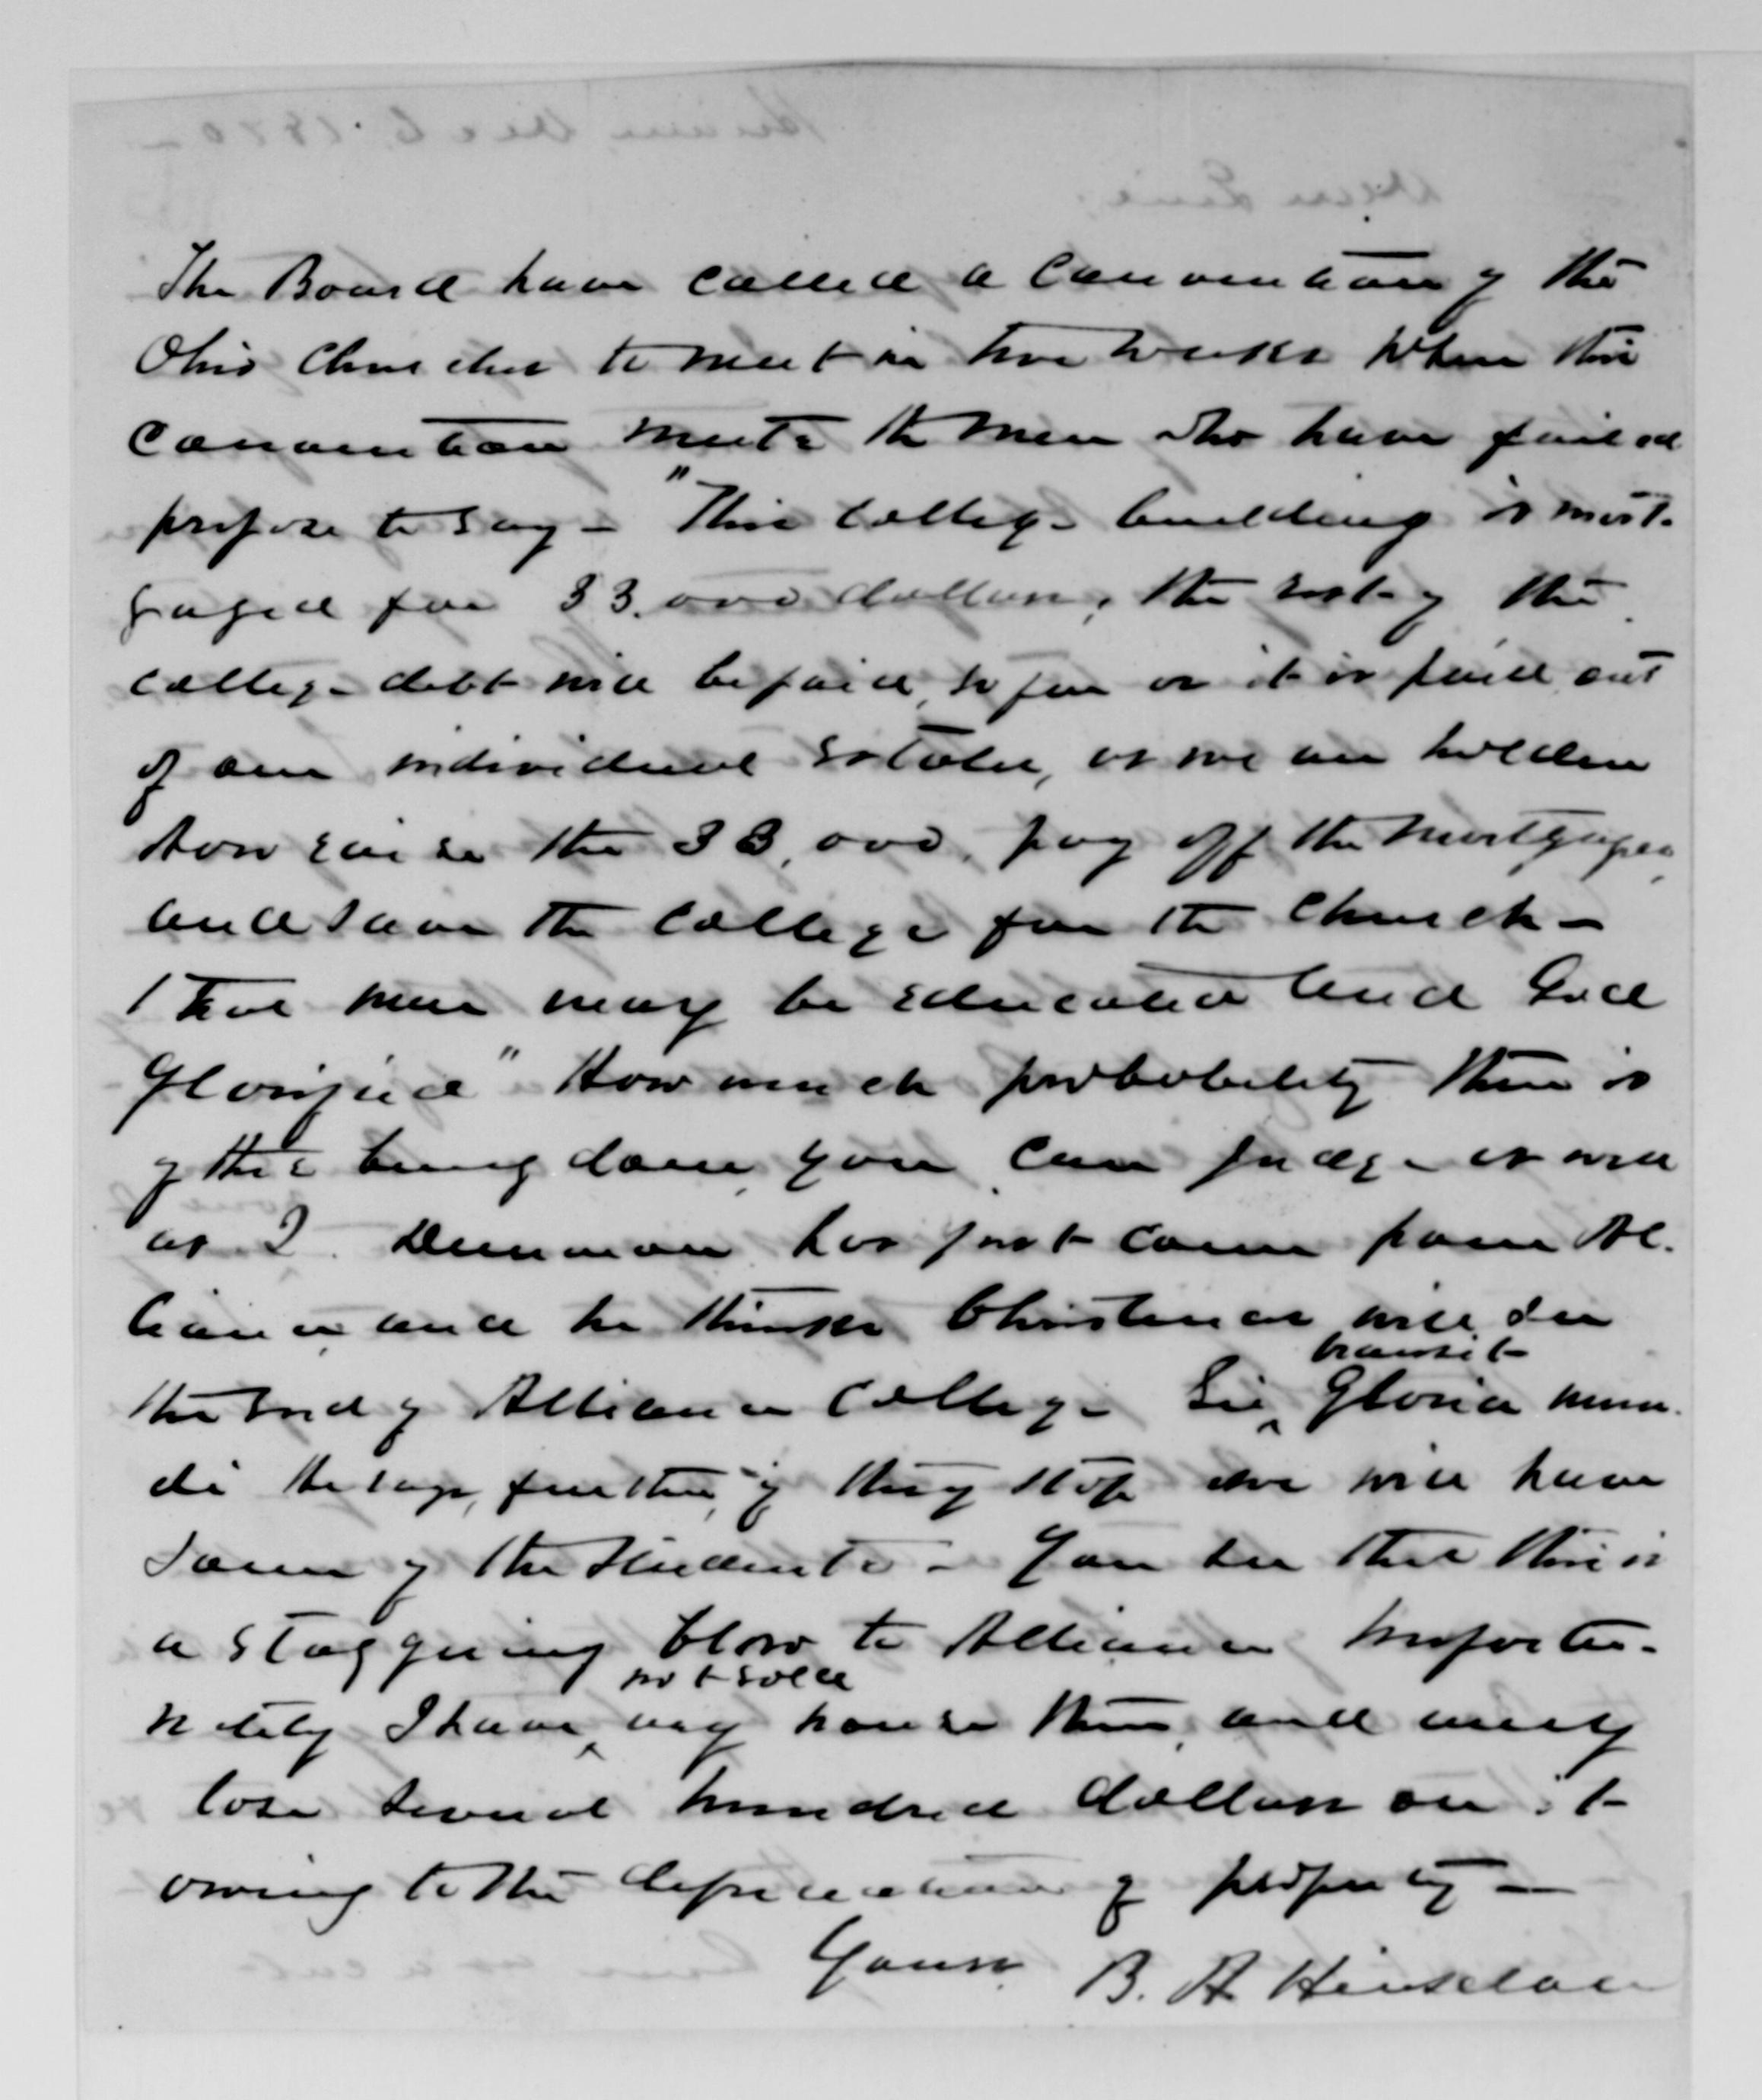 The Board have called a Convention of the
Ohio Churches to meet in two weeks When this
Convention meets the men who have failed
propose to say – "This College building is mort-
gaged for 33.000 dollars, the rest of the
college debt will be paid, so far as it is paid, out
of our individual estates, as we are holden
Now raise the 33,000, pay off the mortgages,
and save the College for the Church –
that men may be educated and God
Glorified" How much probability there is
of this being done, you can judge as well
as I. Denman has just come from Al-
liance and he thinks Christmas will see
the end of Alliance College Sic transit Gloria mun-
di He says, further, if they stop we will have
some of the Students – You see that this is
a staggering blow to Alliance Unfortu-
nately I have not sold my house there, and may
lose several hundred dollars on it
owing to the depreciation of property —
Yours. B. A Hinsdale